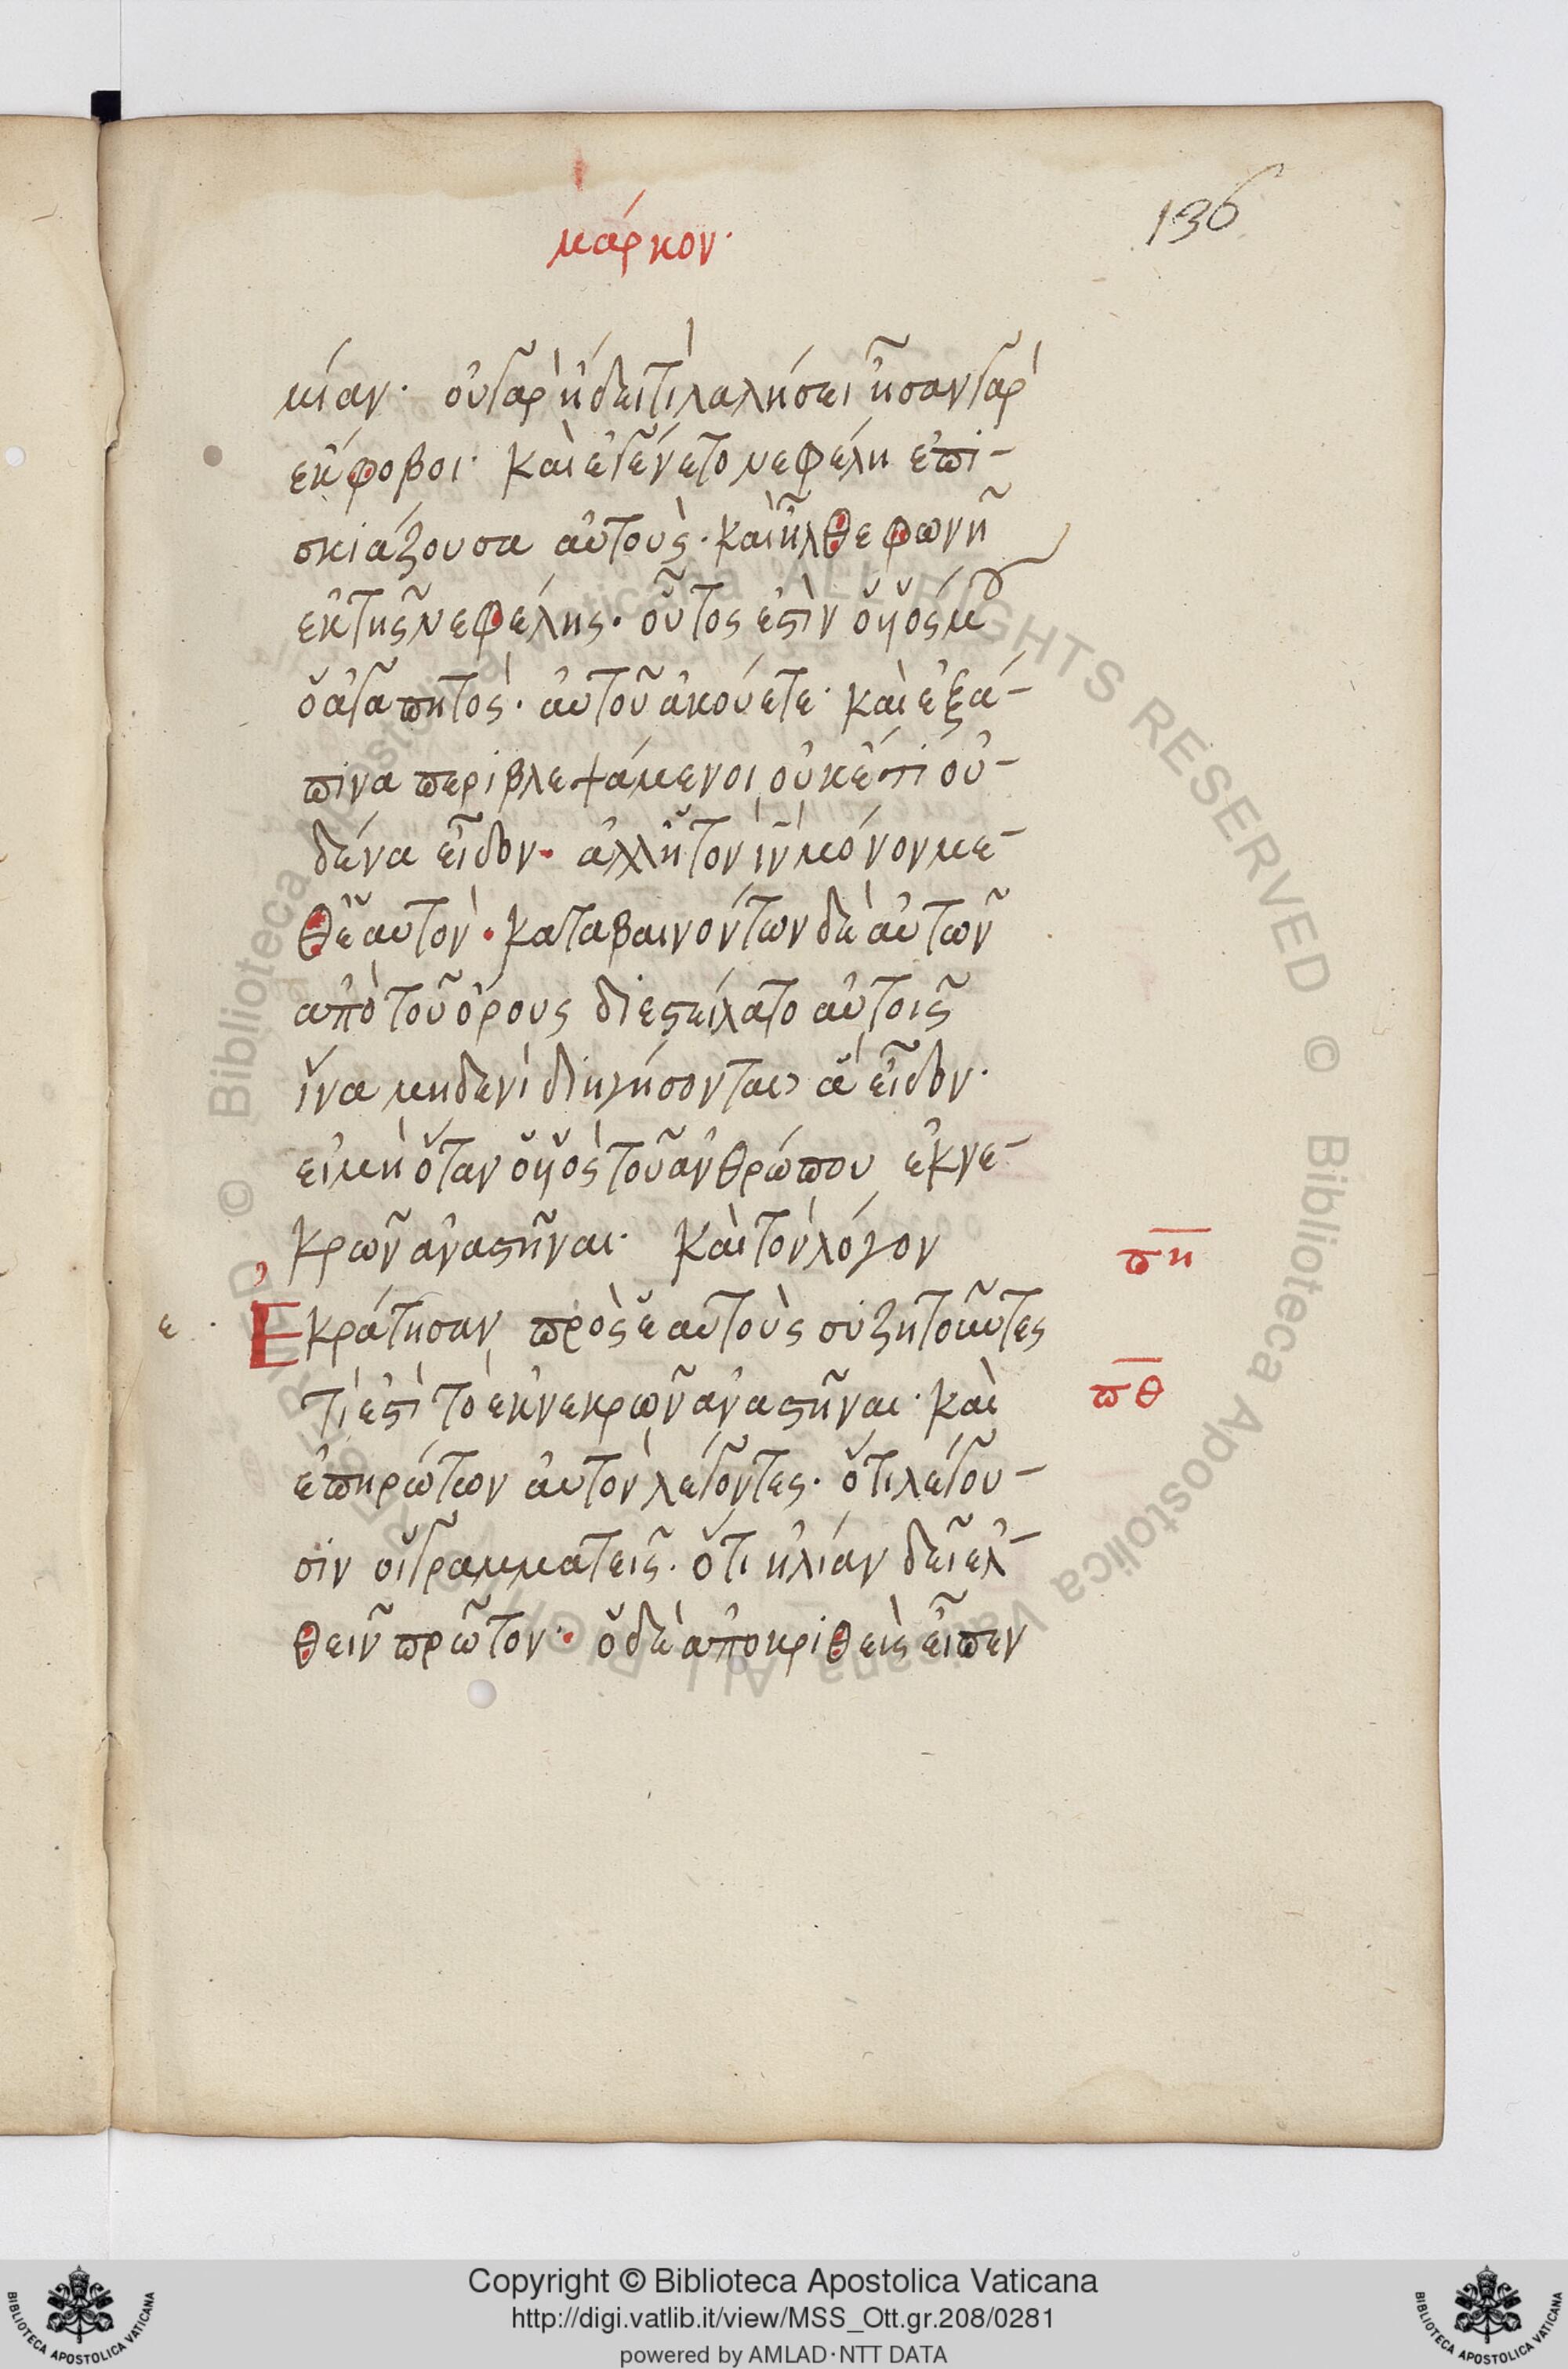 μάρκον·
136
μίαν· οὐ γὰρ ἤδει τί λαλήσει ἦσαν γὰρ
ἔκφοβοι· καὶ ἐγένετο νεφέλη ἐπι-
σκιάζουσα αὐτοὺς· καὶ ἦλθε φωνῆ
ἐκ τῆς νεφέλης· οὗτός ἐστὶν ὁ υἱός μου
ὁ ἀγαπητὸς· αὐτοῦ ἀκούετε· καὶ ἐξά-
πινα περιβλεψάμενοι οὐκέτι οὐ-
δένα εἶδον· ἀλλ' ἢ τὸν ἰν μόνον με-
θ' ἑαυτὸν· καταβαινόντων δὲ αὐτῶν
ἀπὸ τοῦ ὄρους διεστείλατο αὐτοῖς
ἵνα μηδενὶ διηγήσονται ἃ εἶδον·
εἰ μὴ ὅταν ὁ υἱὸς τοῦ ἀνθρώπου ἐκ νε-
κρῶν ἀναστῆναι· καὶ τὸν λόγον
πη
ε· Ἐκράτησαν πρὸς ἑαυτοὺς συζητοῦντες
τί ἐστὶ τὸ ἐκ νεκρῶν ἀναστῆναι· καὶ
πθ
ἐπηρώτων αὐτὸν λέγοντες· ὅτι λέγου-
σιν οἱ γραμματεῖς· ὅτι ἠλίαν δεῖ ἐλ-
θεῖν πρῶτον· ὁ δὲ ἀποκριθεὶς εἶπεν
© Biblioteca Apostolica Vaticana ALL RIGHTS RESERVED © Biblioteca Apostolica Vaticana ALL RIGHTS RESERVED
Copyright © Biblioteca Apostolica Vaticana
http://digi.vatlib.it/view/MSS_Ott.gr.208/0281
powered by AMLAD·NTT DATA
BIBLIOTECA APOSTOLICA VATICANA
BIBLIOTECA APOSTOLICA VATICANA